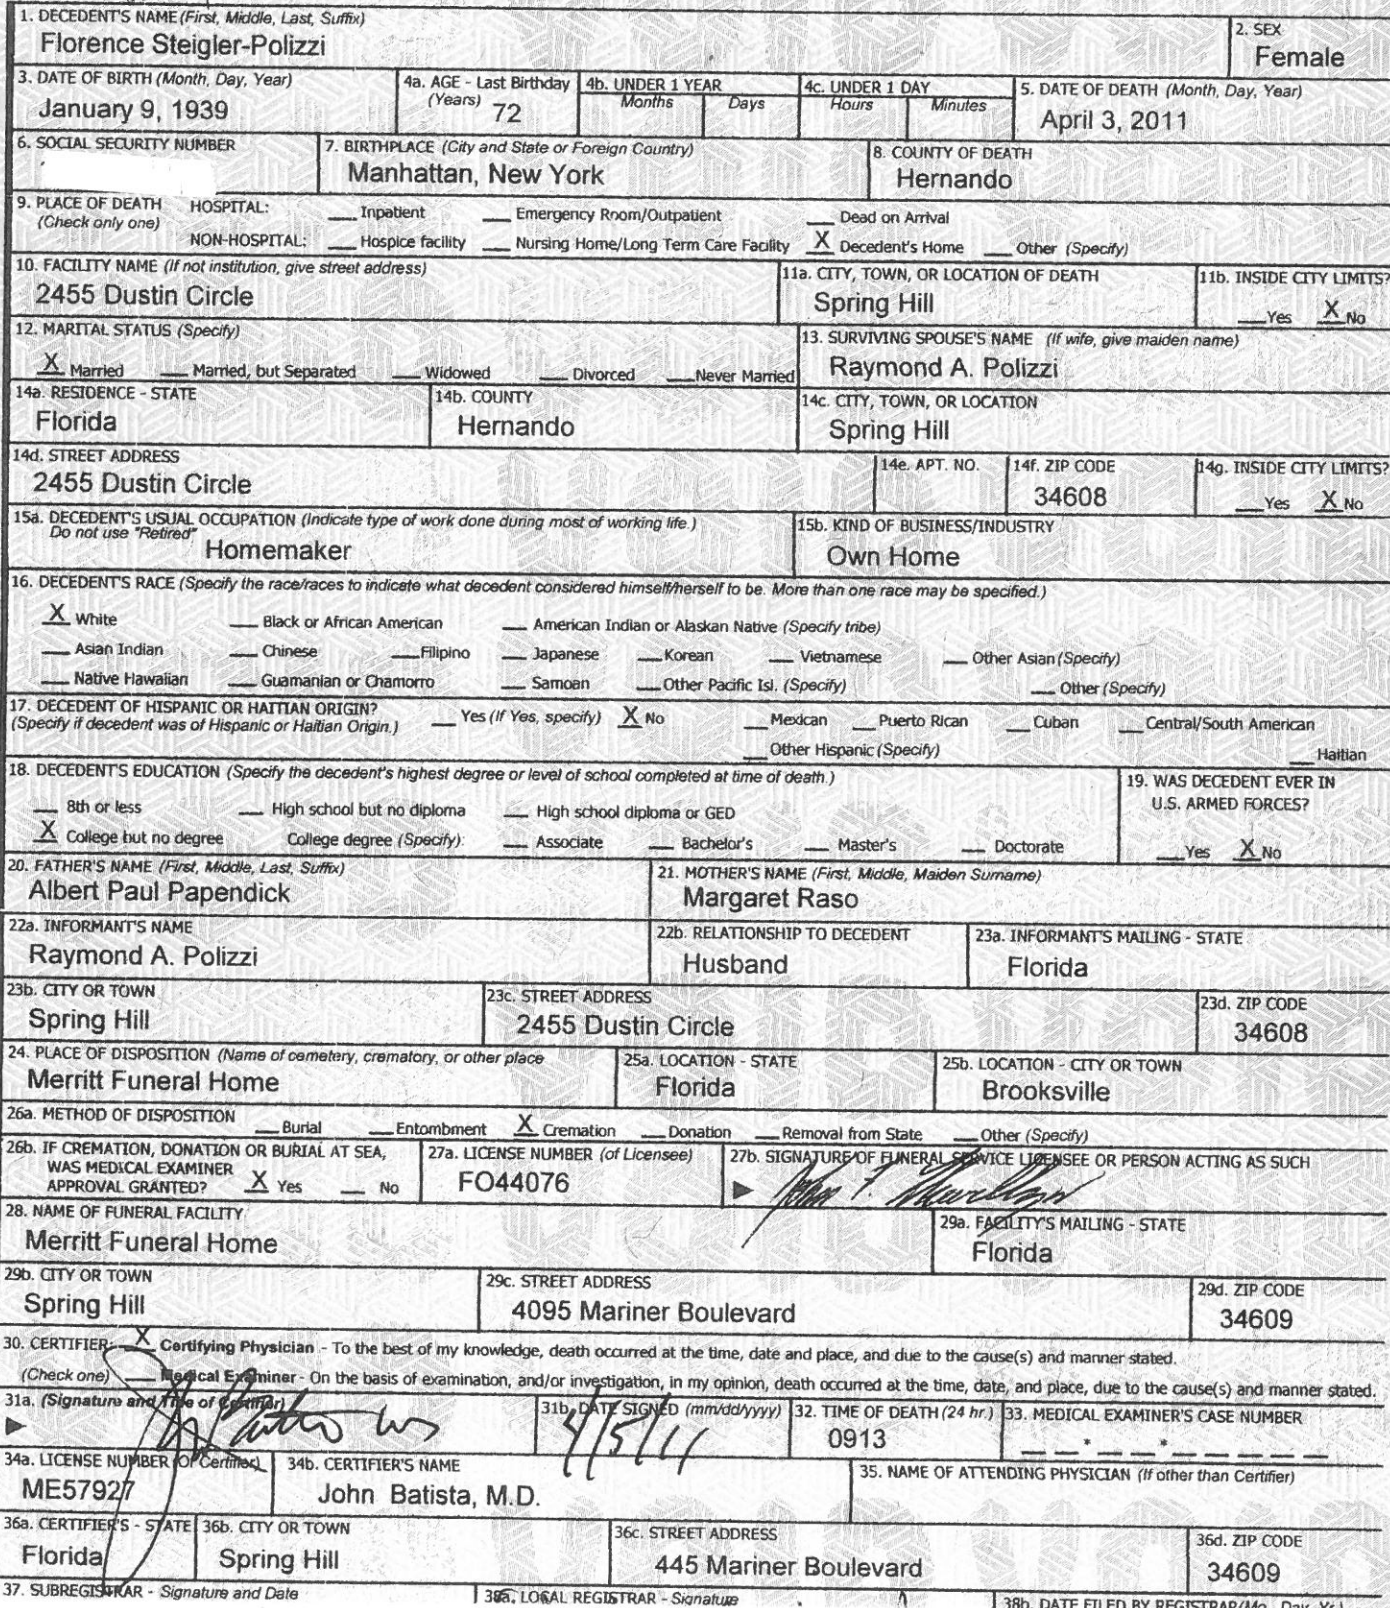 1. DECEDENT'S NAME (First, Middle, Last, Suffix)
Florence Steigler-Polizzi
2. SEX
Female
3. DATE OF BIRTH (Month, Day, Year)
January 9, 1939
4a. AGE - Last Birthday
(Years) 72
4b. UNDER 1 YEAR
Months Days
4c. UNDER 1 DAY
Hours Minutes
5. DATE OF DEATH (Month, Day, Year)
April 3, 2011
6. SOCIAL SECURITY NUMBER
7. BIRTHPLACE (City and State or Foreign Country)
Manhattan, New York
8. COUNTY OF DEATH
Hernando
9. PLACE OF DEATH
(Check only one)
HOSPITAL: ___ Inpatient ___ Emergency Room/Outpatient ___ Dead on Arrival
NON-HOSPITAL: ___ Hospice facility ___ Nursing Home/Long Term Care Facility X Decedent's Home ___ Other (Specify)
10. FACILITY NAME (If not institution, give street address)
2455 Dustin Circle
11a. CITY, TOWN, OR LOCATION OF DEATH
Spring Hill
11b. INSIDE CITY LIMITS?
___Yes X No
12. MARITAL STATUS (Specify)
X Married ___ Married, but Separated ___ Widowed ___ Divorced ___ Never Married
13. SURVIVING SPOUSE'S NAME (If wife, give maiden name)
Raymond A. Polizzi
14a. RESIDENCE - STATE
Florida
14b. COUNTY
Hernando
14c. CITY, TOWN, OR LOCATION
Spring Hill
14d. STREET ADDRESS
2455 Dustin Circle
14e. APT. NO.
14f. ZIP CODE
34608
14g. INSIDE CITY LIMITS?
___Yes X No
15a. DECEDENT'S USUAL OCCUPATION (Indicate type of work done during most of working life.)
Do not use "Retired" Homemaker
15b. KIND OF BUSINESS/INDUSTRY
Own Home
16. DECEDENT'S RACE (Specify the race/races to indicate what decedent considered himself/herself to be. More than one race may be specified.)
X White ___ Black or African American ___ American Indian or Alaskan Native (Specify tribe)
___ Asian Indian ___ Chinese ___ Filipino ___ Japanese ___ Korean ___ Vietnamese ___ Other Asian (Specify)
___ Native Hawaiian ___ Guamanian or Chamorro ___ Samoan ___ Other Pacific Isl. (Specify) ___ Other (Specify)
17. DECEDENT OF HISPANIC OR HAITIAN ORIGIN?
(Specify if decedent was of Hispanic or Haitian Origin.)
___ Yes (If Yes, specify) X No ___ Mexican ___ Puerto Rican ___ Cuban ___ Central/South American
___ Other Hispanic (Specify) ___ Haitian
18. DECEDENT'S EDUCATION (Specify the decedent's highest degree or level of school completed at time of death.)
___ 8th or less ___ High school but no diploma ___ High school diploma or GED
X College but no degree College degree (Specify): ___ Associate ___ Bachelor's ___ Master's ___ Doctorate
19. WAS DECEDENT EVER IN
U.S. ARMED FORCES?
___Yes X No
20. FATHER'S NAME (First, Middle, Last, Suffix)
Albert Paul Papendick
21. MOTHER'S NAME (First, Middle, Maiden Surname)
Margaret Raso
22a. INFORMANT'S NAME
Raymond A. Polizzi
22b. RELATIONSHIP TO DECEDENT
Husband
23a. INFORMANT'S MAILING - STATE
Florida
23b. CITY OR TOWN
Spring Hill
23c. STREET ADDRESS
2455 Dustin Circle
23d. ZIP CODE
34608
24. PLACE OF DISPOSITION (Name of cemetery, crematory, or other place
Merritt Funeral Home
25a. LOCATION - STATE
Florida
25b. LOCATION - CITY OR TOWN
Brooksville
26a. METHOD OF DISPOSITION
___ Burial ___ Entombment X Cremation ___ Donation ___ Removal from State ___ Other (Specify)
26b. IF CREMATION, DONATION OR BURIAL AT SEA,
WAS MEDICAL EXAMINER
APPROVAL GRANTED? X Yes ___ No
27a. LICENSE NUMBER (of Licensee)
FO44076
27b. SIGNATURE OF FUNERAL SERVICE LICENSEE OR PERSON ACTING AS SUCH
28. NAME OF FUNERAL FACILITY
Merritt Funeral Home
29a. FACILITY'S MAILING - STATE
Florida
29b. CITY OR TOWN
Spring Hill
29c. STREET ADDRESS
4095 Mariner Boulevard
29d. ZIP CODE
34609
30. CERTIFIER: X Certifying Physician - To the best of my knowledge, death occurred at the time, date and place, and due to the cause(s) and manner stated.
(Check one) ___ Medical Examiner - On the basis of examination, and/or investigation, in my opinion, death occurred at the time, date, and place, due to the cause(s) and manner stated.
31a. (Signature and Title of Certifier)
31b. DATE SIGNED (mm/dd/yyyy)
4/5/11
32. TIME OF DEATH (24 hr.)
0913
33. MEDICAL EXAMINER'S CASE NUMBER
34a. LICENSE NUMBER (of Certifier)
ME57927
34b. CERTIFIER'S NAME
John Batista, M.D.
35. NAME OF ATTENDING PHYSICIAN (If other than Certifier)
36a. CERTIFIER'S - STATE
Florida
36b. CITY OR TOWN
Spring Hill
36c. STREET ADDRESS
445 Mariner Boulevard
36d. ZIP CODE
34609
37. SUBREGISTRAR - Signature and Date
38a. LOCAL REGISTRAR - Signature
38b. DATE FILED BY REGISTRAR (Mo., Day, Yr.)